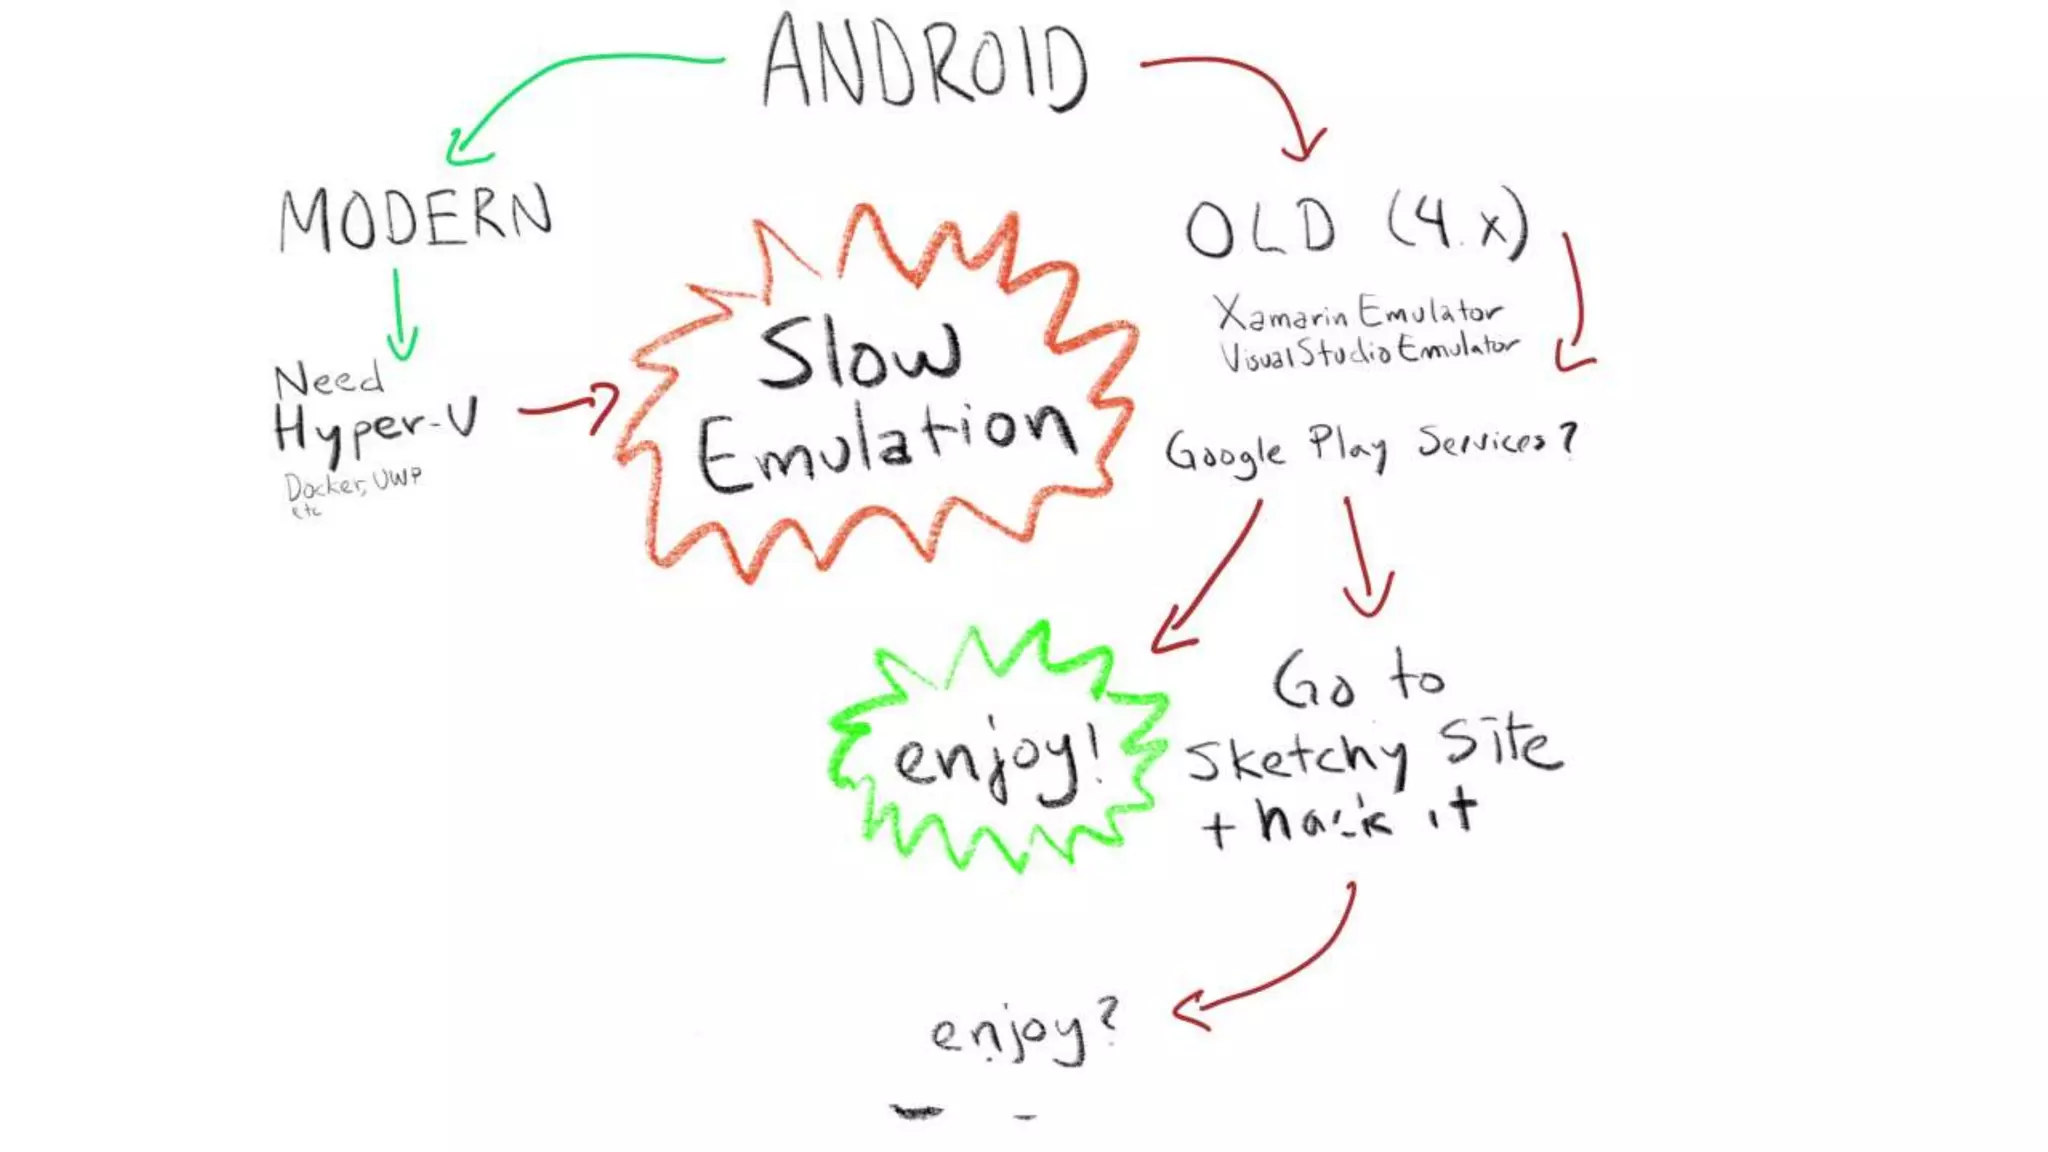 ANDROID
MODERN
OLD (4.x)
Xamarin Emulator
Visual Studio Emulator
Need
Hyper-V
Docker, UWP
etc
Slow
Emulation
Google Play Services?
enjoy!
Go to
Sketchy Site
+ hack it
enjoy?